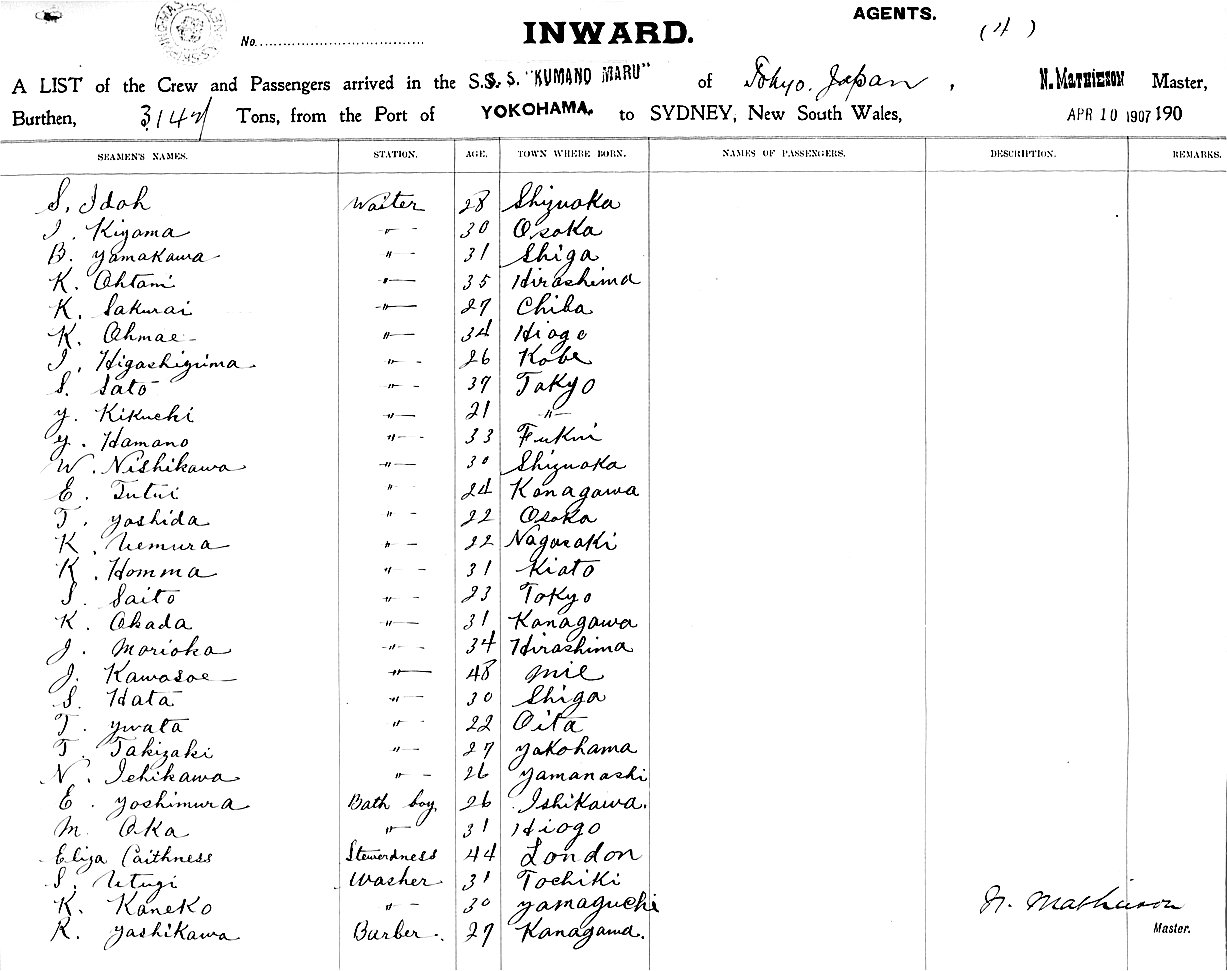 AGENTS.
No.
INWARD.
(4)
A LIST of the Crew and Passengers arrived in the S.S. S. "KUMANO MARU" of Tokyo, Japan, N. MATHIESON Master,
Burthen, 3147 Tons, from the Port of YOKOHAMA. to SYDNEY, New South Wales, APR 10 1907 190
SEAMEN'S NAMES. STATION. AGE. TOWN WHERE BORN. NAMES OF PASSENGERS. DESCRIPTION. REMARKS.
S. Idoh Waiter 28 Shizuoka
I. Kiyama " 30 Osaka
B. Yamakawa " 31 Shiga
K. Ohtani " 35 Hirashima
K. Sakurai " 27 Chiba
K. Ohmae " 34 Hiogo
I. Higashizima " 26 Kobe
S. Sato " 37 Tokyo
Y. Kikuchi " 21 "
Y. Hamano " 33 Fukui
W. Nishikawa " 30 Shizuoka
E. Tutui " 24 Kanagawa
T. Yoshida " 22 Osaka
K. Uemura " 22 Nagasaki
K. Homma " 31 Kioto
S. Saito " 23 Tokyo
K. Okada " 31 Kanagawa
J. Morioka " 34 Hirashima
J. Kawasoe " 48 Mie
S. Hata " 30 Shiga
T. Ywata " 22 Oita
T. Takizaki " 27 Yokohama
N. Ichikawa " 26 Yamanashi
E. Yoshimura Bath boy 26 Ishikawa.
M. Oka " 31 Hiogo
Eliza Caithness Stewerdness 44 London
S. Utugi Washer 31 Tochiki
K. Kaneko " 30 Yamaguchi
N. Mathieson
K. Yashikawa Burber. 27 Kanagawa.
Master.